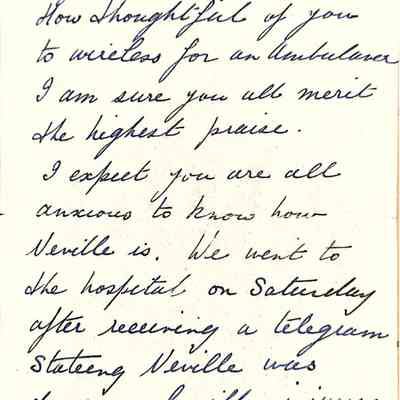 How thoughtful of you
to wireless for an Ambulance
I am sure you all merit
the highest praise.
I expect you are all
anxious to know how
Neville is. We went to
the hospital on Saturday
after receiving a telegram
Stateing Neville was